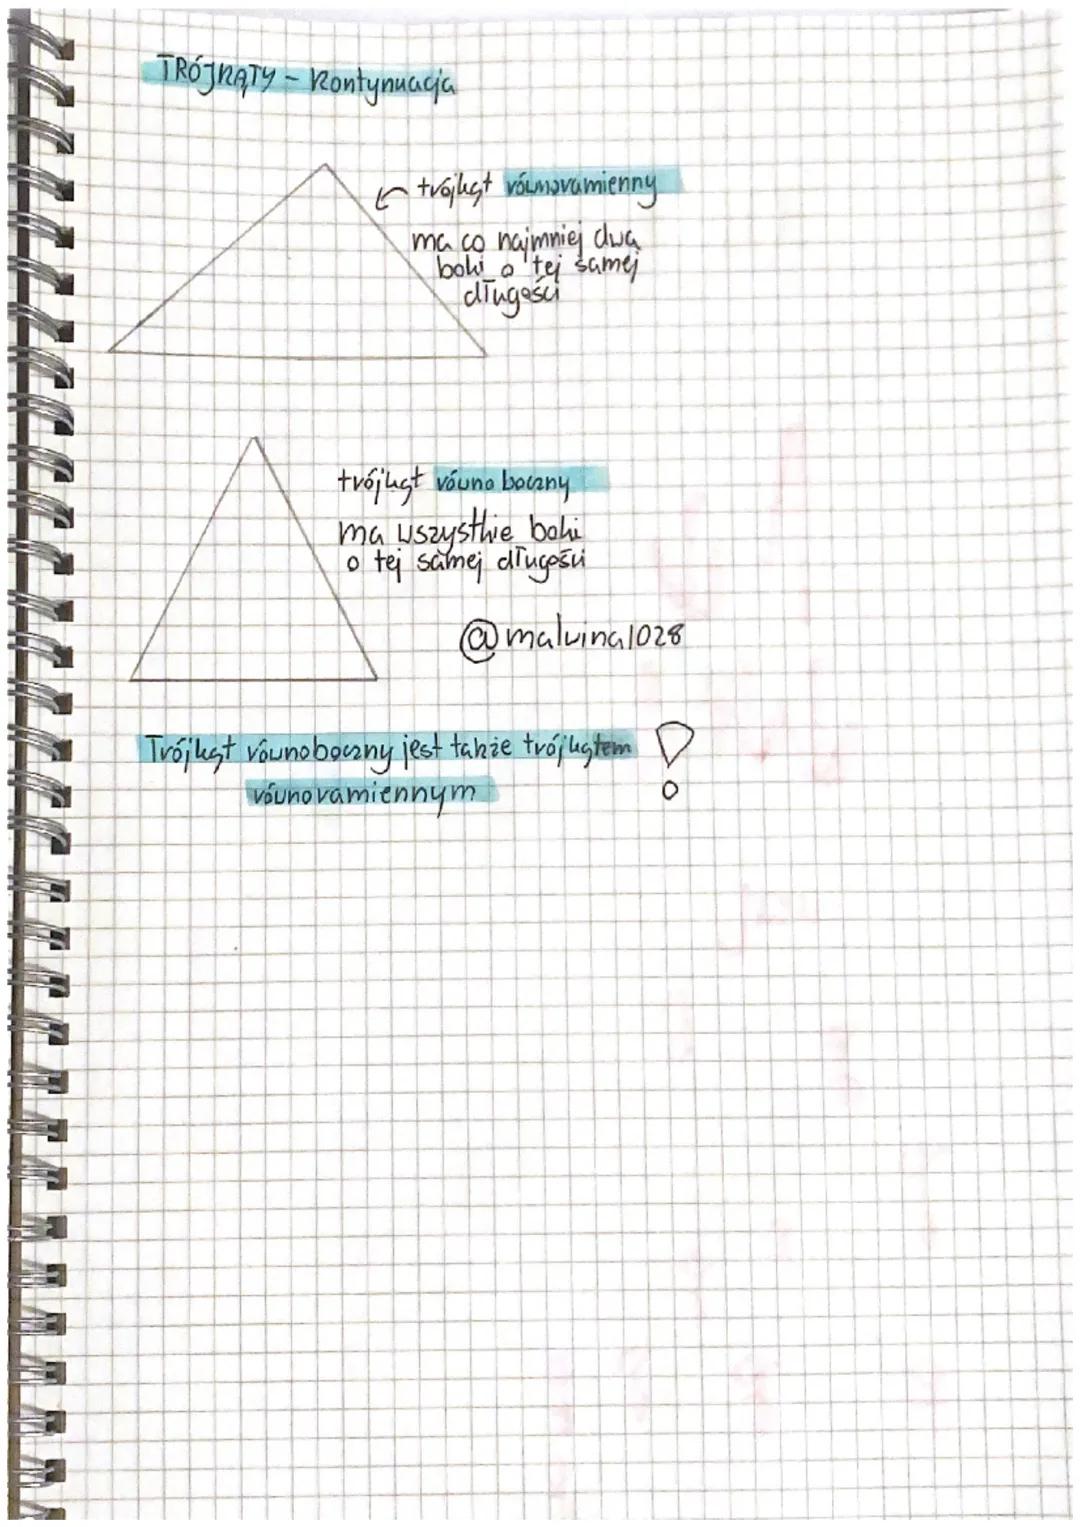 TRÓJKĄTY - kontynuacja
trójkąt równoramienny
ma co najmniej dwa
boki o tej samej
długości
trójkąt równoboczny
ma wszystkie boki
o tej samej długości
@malwina1028
Trójkąt równoboczny jest także trójkątem !
równoramiennym